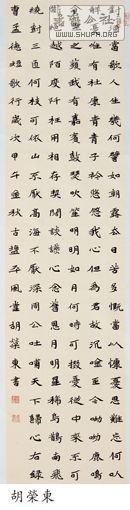 當歌人生幾何譬如朝露去日苦多慨當以慷憂思難忘何以
惟有杜康青青子衿悠悠我心但為君故沉吟至今呦呦鹿鳴
食野之苹我有嘉賓鼓瑟吹笙明明如月何時可掇憂從中來不可
越陌度阡枉用相存契闊談讌心念舊恩月明星稀烏鵲南飛
繞樹三匝何枝可依山不厭高海不厭深周公吐哺天下歸心右錄
曹孟德短歌行歲次甲午年秋古鹽風堂胡榮東書
胡榮東